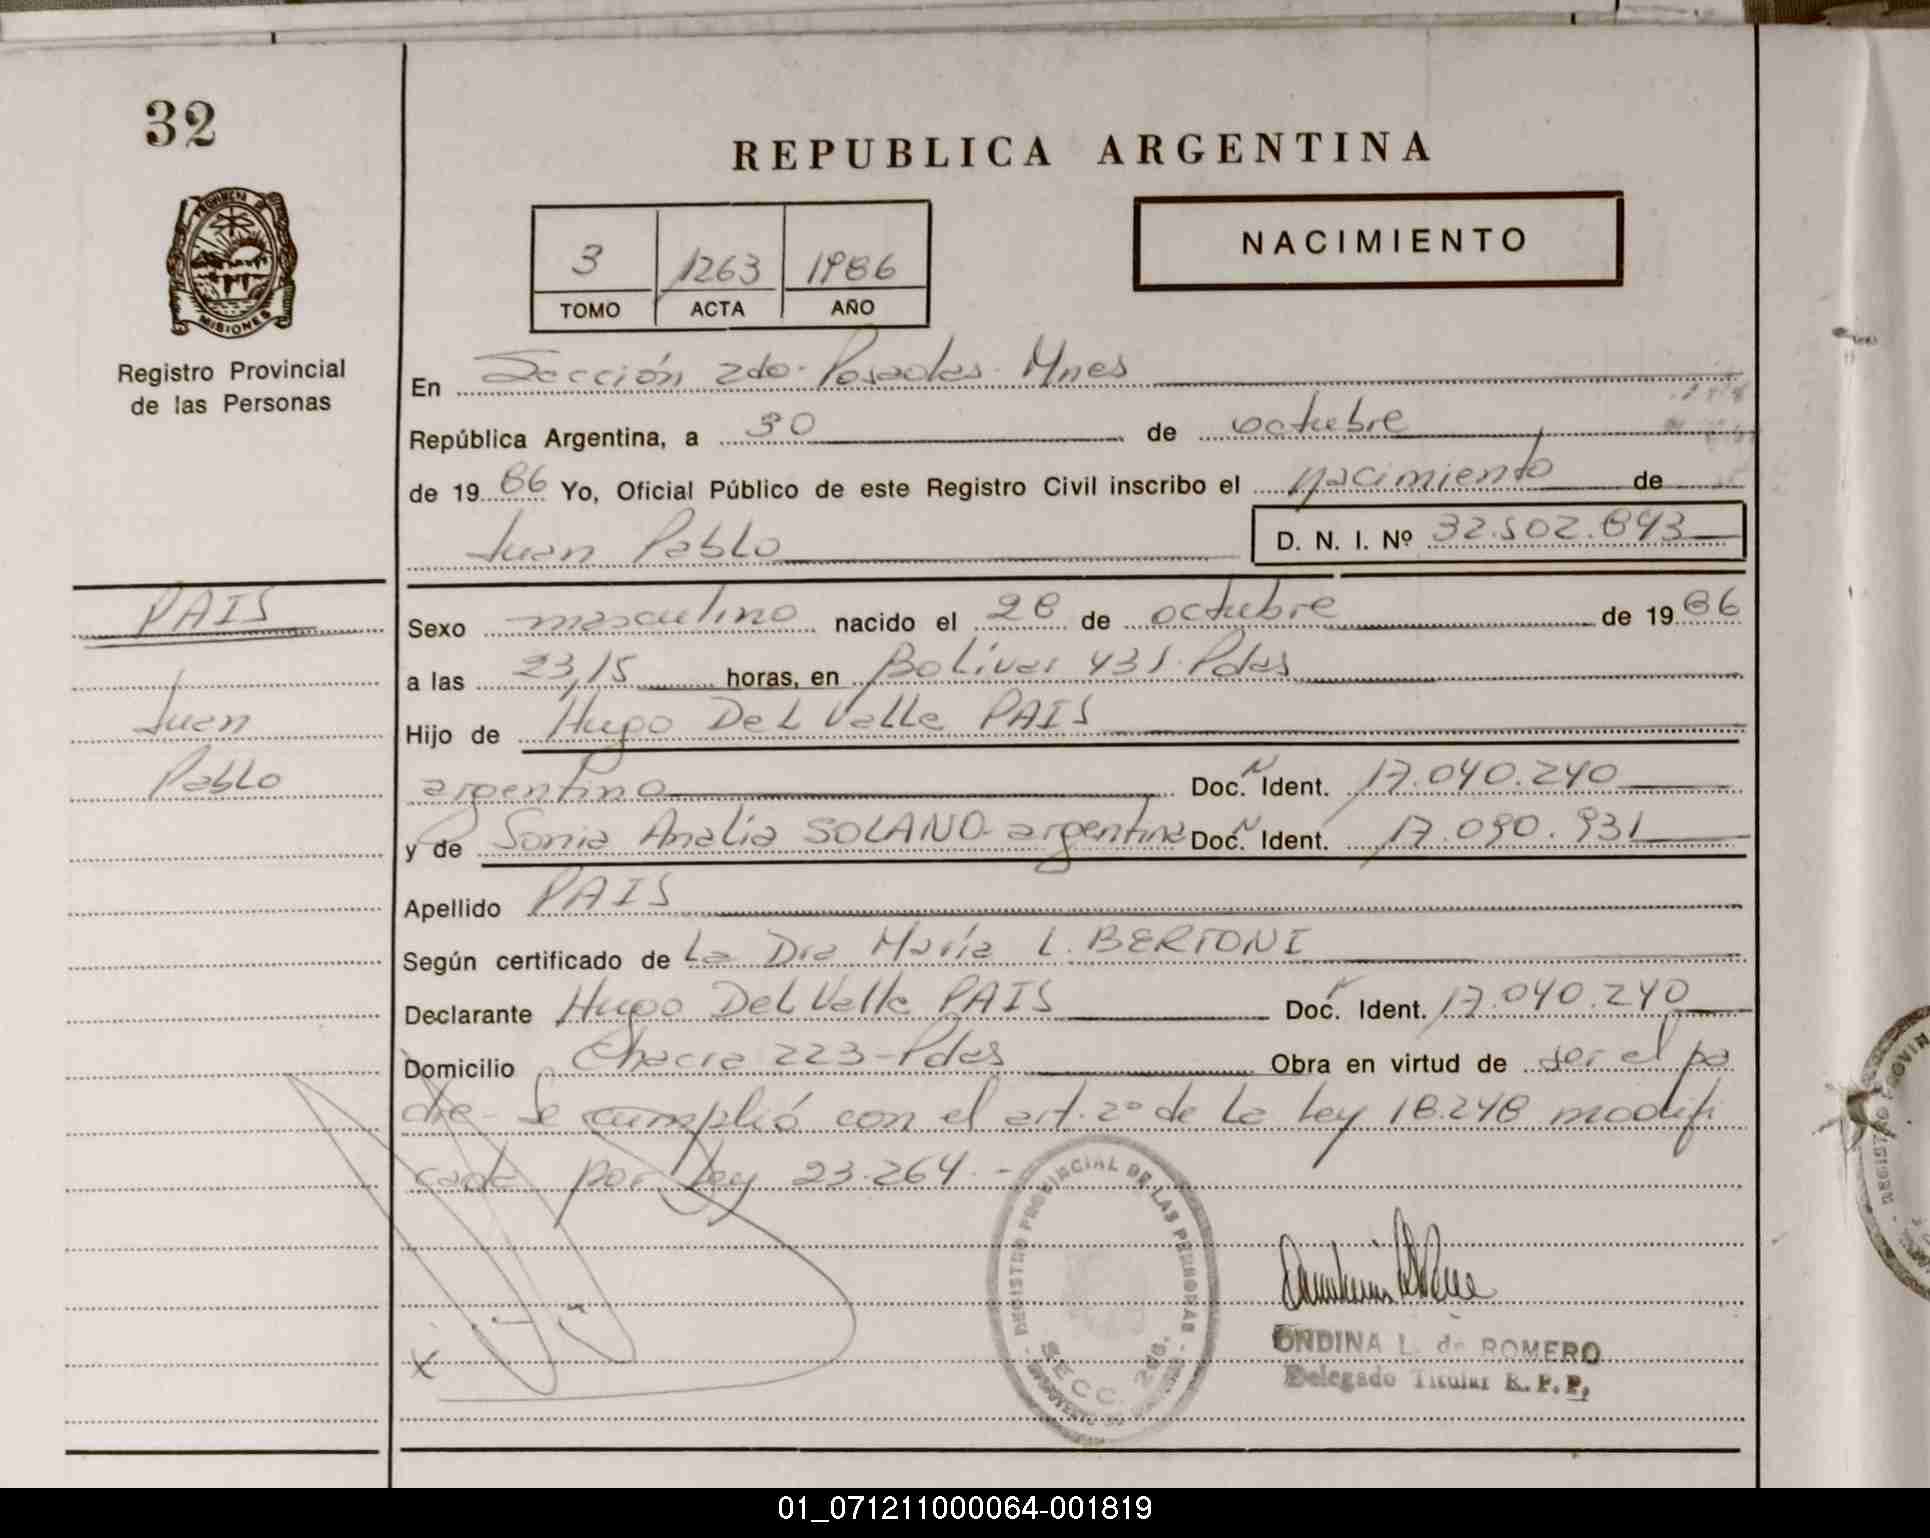 32
REPUBLICA ARGENTINA
PROVINCIA DE
MISIONES
Registro Provincial
de las Personas
3 1263 1986
TOMO ACTA AÑO
NACIMIENTO
En Sección 2do. Posadas. Mnes
República Argentina, a 30 de octubre
de 1986 Yo, Oficial Público de este Registro Civil inscribo el nacimiento de
Juan Pablo D. N. I. Nº 32.502.843
PAIS
Juan
Pablo
Sexo masculino nacido el 28 de octubre de 1986
a las 23,15 horas, en Bolívar 431. Pdas
Hijo de Hugo Del Valle PAIS
argentino Doc. Ident. 17.040.240
y de Sonia Analía SOLANO argentina Doc. Ident. 17.090.931
Apellido PAIS
Según certificado de La Dra María L. BERTONI
Declarante Hugo Del Valle PAIS Doc. Ident. 17.040.240
Domicilio Chacra 223-Pdas Obra en virtud de ser el pa
dre- Se cumplió con el art. 2º de la Ley 18.248 modifi
cada por Ley 23.264.-
REGISTRO PROVINCIAL DE LAS PERSONAS
SECC. 2da.
X
ONDINA L. de ROMERO
Delegado Titular R.P.P.
01_071211000064-001819